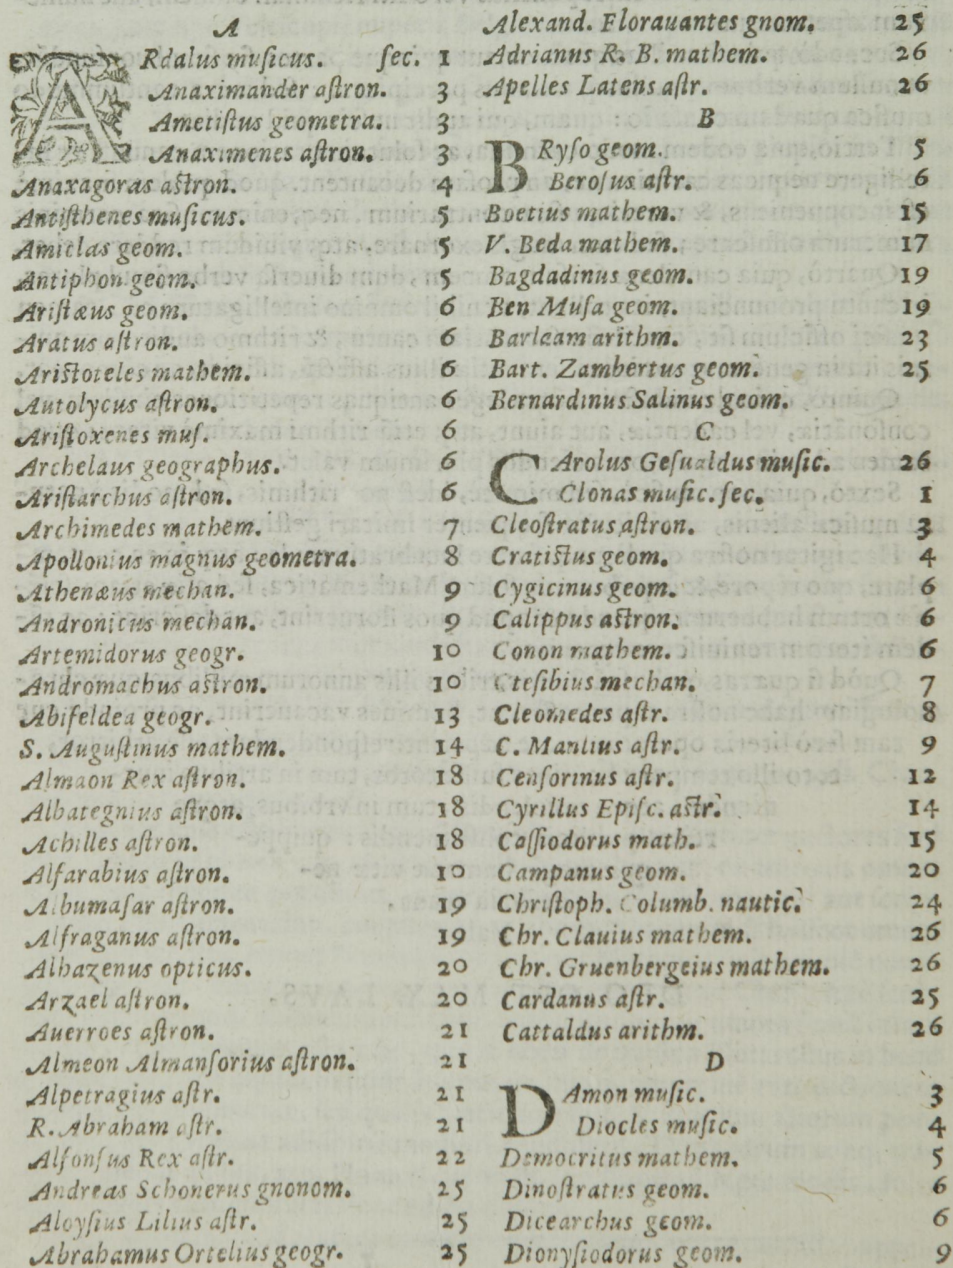 A
ARdalus muſicus. ſec. 1
Anaximander aſtron. 3
Ametiſtus geometra. 3
Anaximenes aſtron. 3
Anaxagoras aſtron. 4
Antiſthenes muſicus. 5
Amiclas geom. 5
Antiphon geom. 5
Ariſtæus geom. 6
Aratus aſtron. 6
Ariſtoteles mathem. 6
Autolycus aſtron. 6
Ariſtoxenes muſ. 6
Archelaus geographus. 6
Ariſtarchus aſtron. 6
Archimedes mathem. 7
Apollonius magnus geometra. 8
Athenæus mechan. 9
Andronicus mechan. 9
Artemidorus geogr. 10
Andromachus aſtron. 10
Abifeldea geogr. 13
S. Auguſtinus mathem. 14
Almaon Rex aſtron. 18
Albategnius aſtron. 18
Achilles aſtron. 18
Alfarabius aſtron. 10
Albumaſar aſtron. 19
Alfraganus aſtron. 19
Alhazenus opticus. 20
Arzael aſtron. 20
Auerroes aſtron. 21
Almeon Almanſorius aſtron. 21
Alpetragius aſtr. 21
R. Abraham aſtr. 21
Alfonſus Rex aſtr. 22
Andreas Schonerus gnonom. 25
Aloyſius Lilius aſtr. 25
Abrahamus Ortelius geogr. 25
Alexand. Florauantes gnom. 25
Adrianus R. B. mathem. 26
Apelles Latens aſtr. 26
B
BRyſo geom. 5
Beroſus aſtr. 6
Boetius mathem. 15
V. Beda mathem. 17
Bagdadinus geom. 19
Ben Muſa geom. 19
Barlaam arithm. 23
Bart. Zambertus geom. 25
Bernardinus Salinus geom.
C
CArolus Geſualdus muſic. 26
Clonas muſic. ſec. 1
Cleoſtratus aſtron. 3
Cratiſtus geom. 4
Cygicinus geom. 6
Calippus aſtron. 6
Conon mathem. 6
Cteſibius mechan. 7
Cleomedes aſtr. 8
C. Manlius aſtr. 9
Cenſorinus aſtr. 12
Cyrillus Epiſc. aſtr. 14
Caſſiodorus math. 15
Campanus geom. 20
Chriſtoph. Columb. nautic. 24
Chr. Clauius mathem. 26
Chr. Gruenbergeius mathem. 26
Cardanus aſtr. 25
Cattaldus arithm. 26
D
DAmon muſic. 3
Diocles muſic. 4
Democritus mathem. 5
Dinoſtratus geom. 6
Dicearchus geom. 6
Dionyſiodorus geom. 9